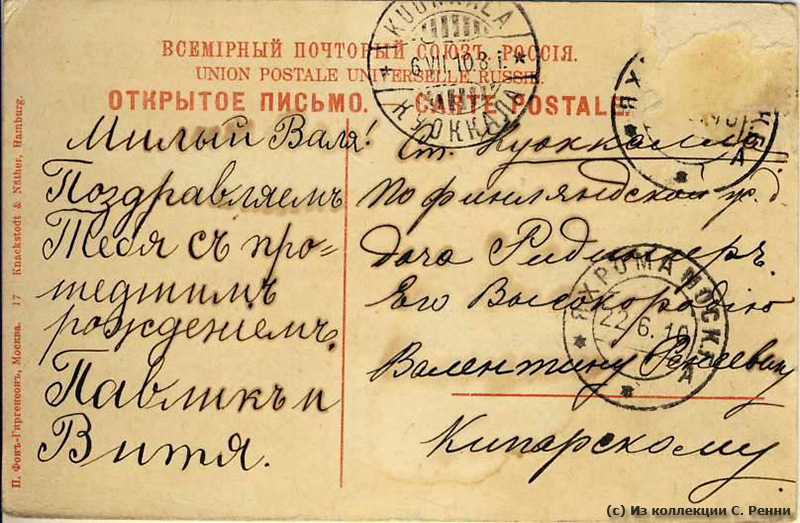 ВСЕМІРНЫЙ ПОЧТОВЫЙ СОЮЗЪ. РОССІЯ.
UNION POSTALE UNIVERSELLE RUSSIE.
ОТКРЫТОЕ ПИСЬМО. — CARTE POSTALE.
KUOKKALA
6.VII.10.8 i.
КУОККАЛА
Милый Валя!
Поздравляемъ
Тебя съ про-
шедшимъ
рожденіемъ.
Павликъ и
Витя.
Ст. Куоккала
по финляндской ж. д
дача Ридингеръ.
Его Высокородію
Валентину
Кипарскому.
ЯХРОМА МОСК. Г.
22.6.10
П. Фонъ-Гиргенсонъ, Москва. 17 Knackstedt & Näther, Hamburg.
(c) Из коллекции С. Ренни